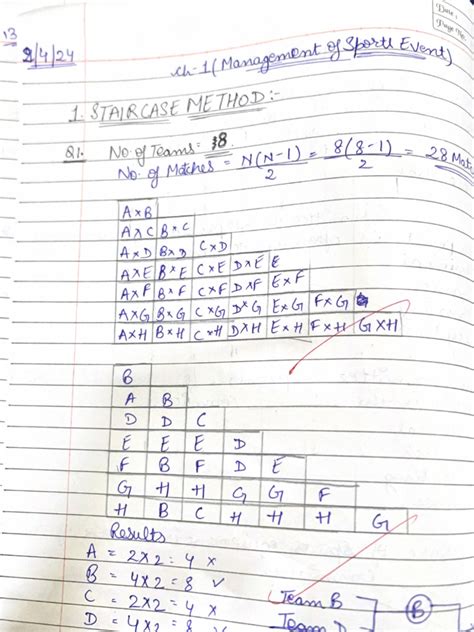 Date:
Page No.
13
2/4/24
ch-1 (Management of Sports Event)
1. STAIRCASE METHOD:-
Q1. No. of Teams = 8
No. of Matches = N(N-1)/2 = 8(8-1)/2 = 28
A×B
A×C B×C
A×D B×D C×D
A×E B×E C×E D×E E
A×F B×F C×F D×F E×F
A×G B×G C×G D×G E×G F×G
A×H B×H C×H D×H E×H F×H G×H
B
A B
D D C
E E E D
F B F D E
G H H G G F
H B C H H H G
Results
A = 2×2 = 4 ×
B = 4×2 = 8 ✓
C = 2×2 = 4 ×
D = 4×2 = 8
Team B
B
Team D